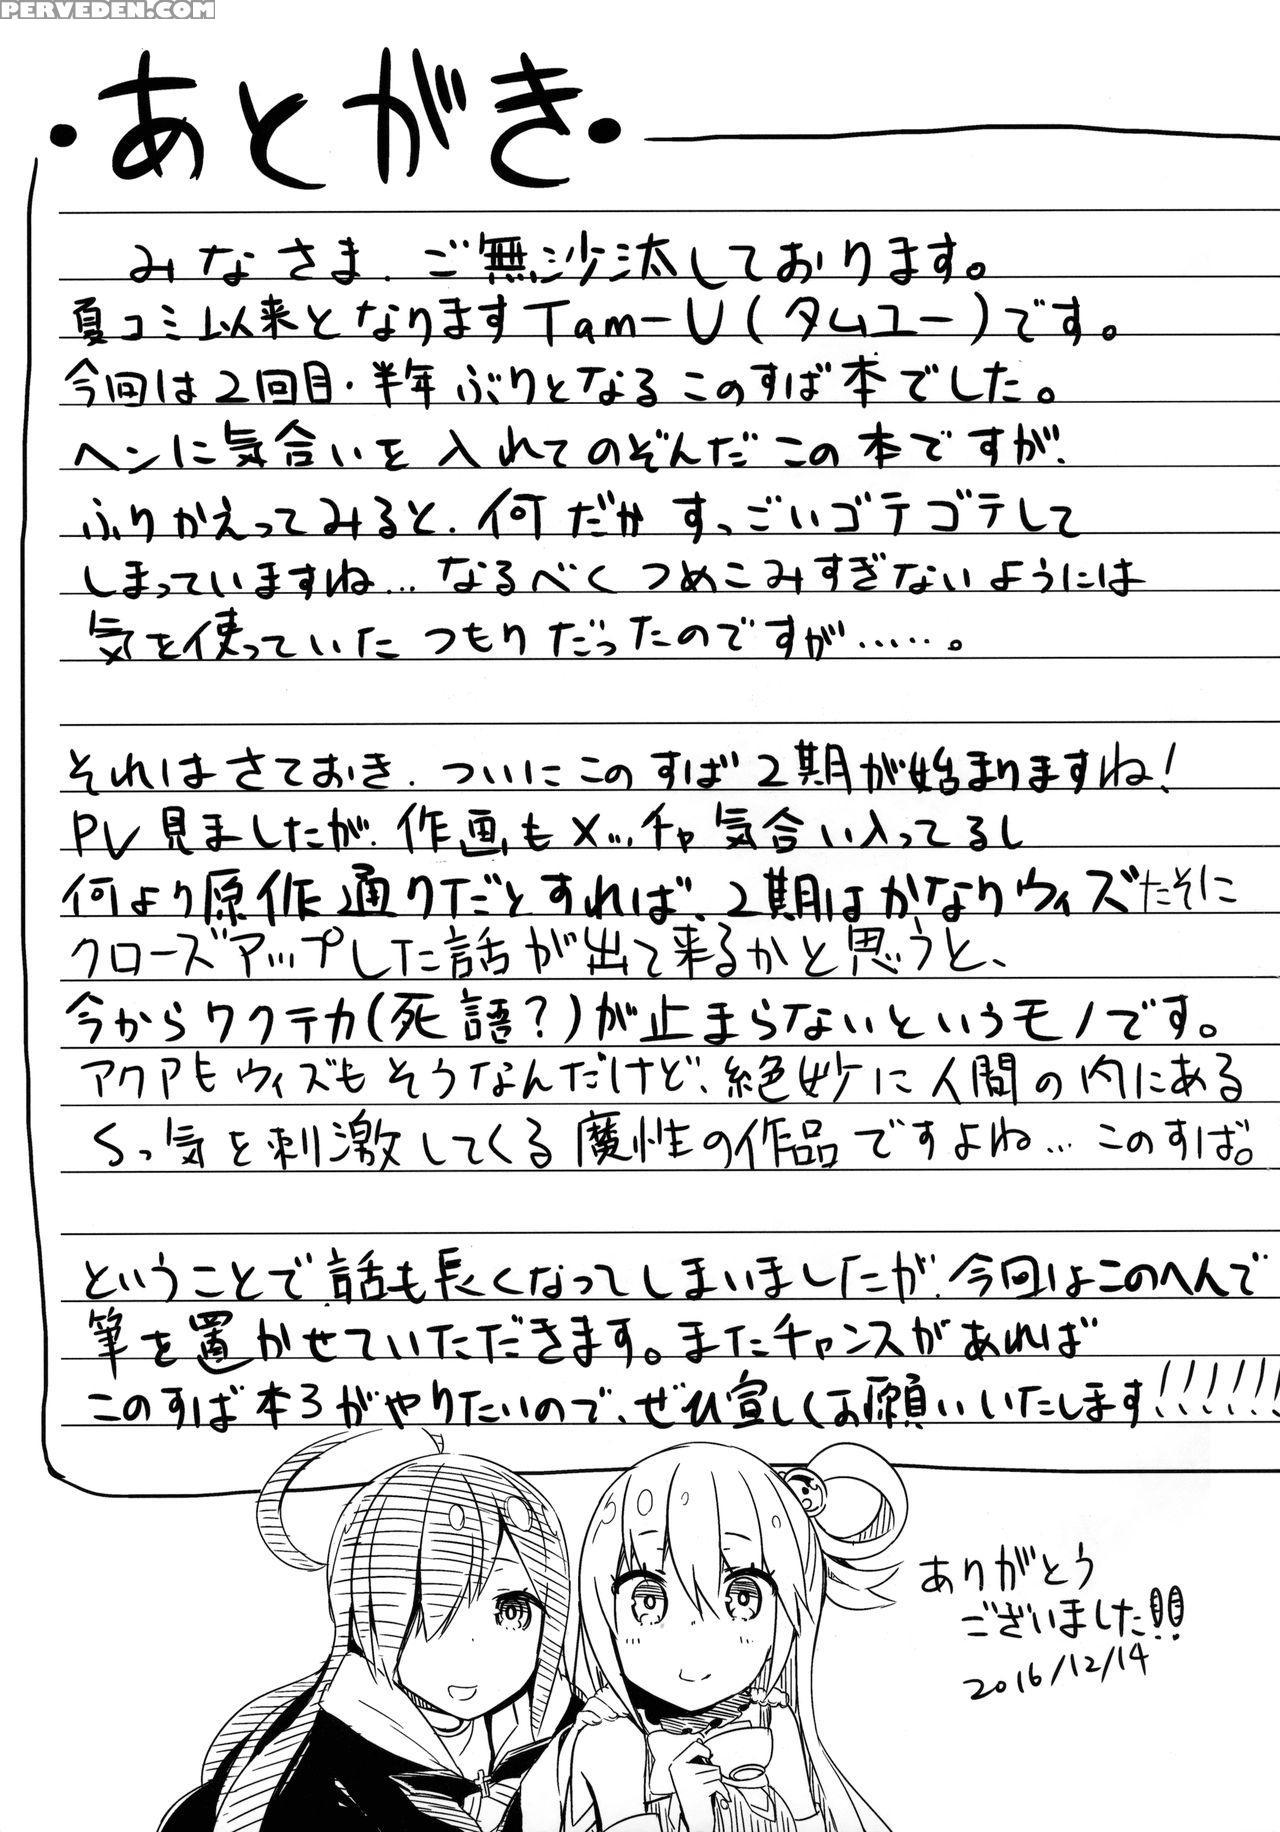 PERVEDEN.COM
・あとがき・
みなさま、ご無沙汰しております。
夏コミ以来となりますTam-U(タムユー)です。
今回は2回目・半年ぶりとなるこのすば本でした。
ヘンに気合いを入れてのぞんだこの本ですが、
ふりかえってみると、何だかすっごいゴテゴテして
しまっていますね…なるべくつめこみすぎないようには
気を使っていたつもりだったのですが……。
それはさておき、ついにこのすば2期が始まりますね!
PV見ましたが、作画もメッチャ気合い入ってるし
何より原作通りだとすれば、2期はかなりウィズたそに
クローズアップした話が出て来るかと思うと、
今からワクテカ(死語?)が止まらないというモノです。
アクアもウィズもそうなんだけど、絶妙に人間の内にある
Sっ気を刺激してくる魔性の作品ですよね…このすば。
ということで話も長くなってしまいましたが、今回はこのへんで
筆を置かせていただきます。またチャンスがあれば
このすば本3がやりたいので、ぜひ宜しくお願いいたします!!!!!!
ありがとう
ございました!!
2016/12/14